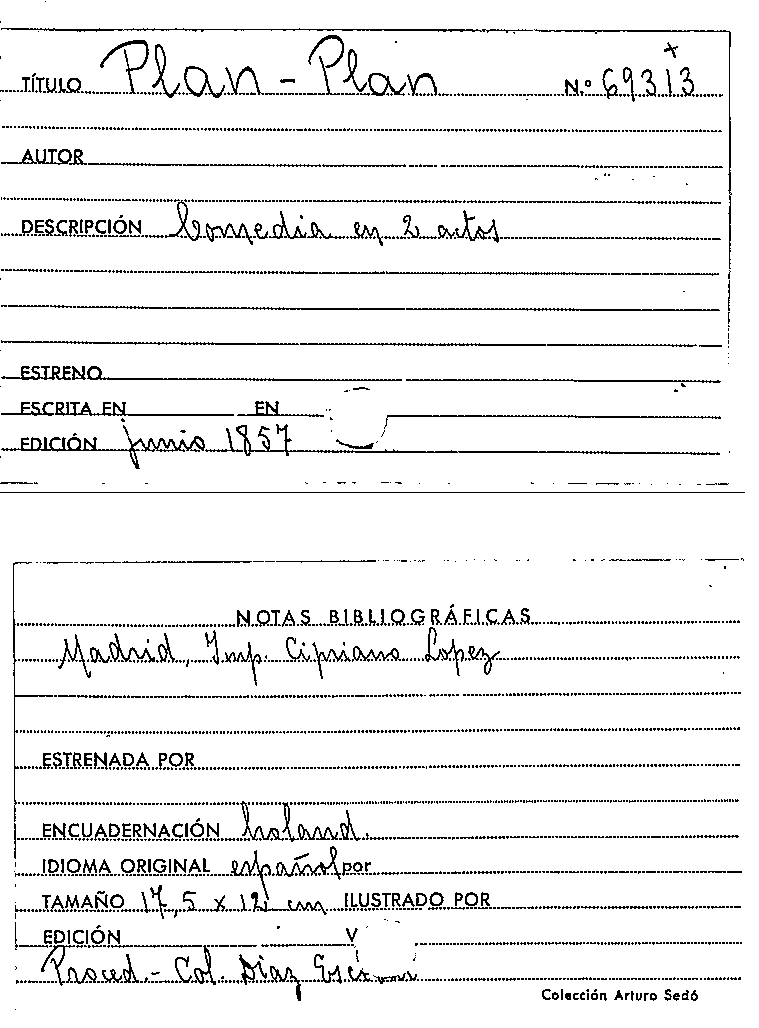 TÍTULO Plan - Plan N.º 69313
AUTOR
DESCRIPCIÓN Comedia en 2 actos
ESTRENO
ESCRITA EN EN
EDICIÓN junio 1857
NOTAS BIBLIOGRÁFICAS
Madrid, Imp. Cipriano Lopez
ESTRENADA POR
ENCUADERNACIÓN holand.
IDIOMA ORIGINAL español por
TAMAÑO 17,5 x 12 cm ILUSTRADO POR
EDICIÓN V
Proced.- Col. Díaz
Colección Arturo Sedó